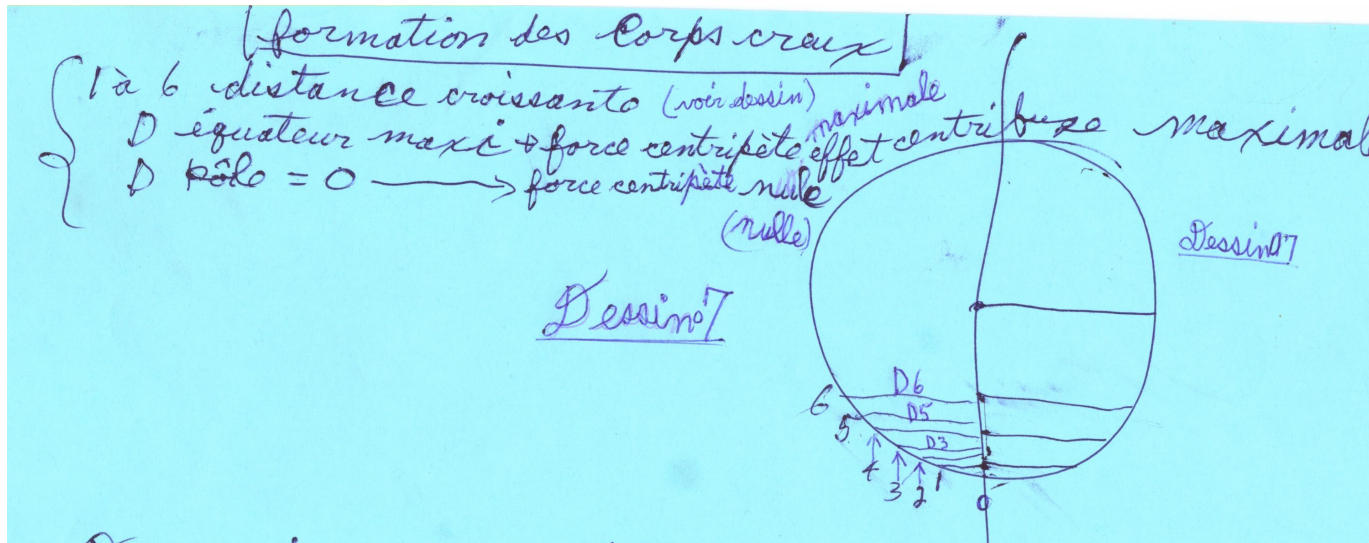 formation des Corps creux
1 à 6 distance croissante (voir dessin)
D équateur maxi → force centripète maximale effet centrifuge maximal
D pôle = 0 → force centripète nule
(nulle)
Dessin n°7
Dessin n°7
D6
6
D5
5
D3
4
3
2
1
0